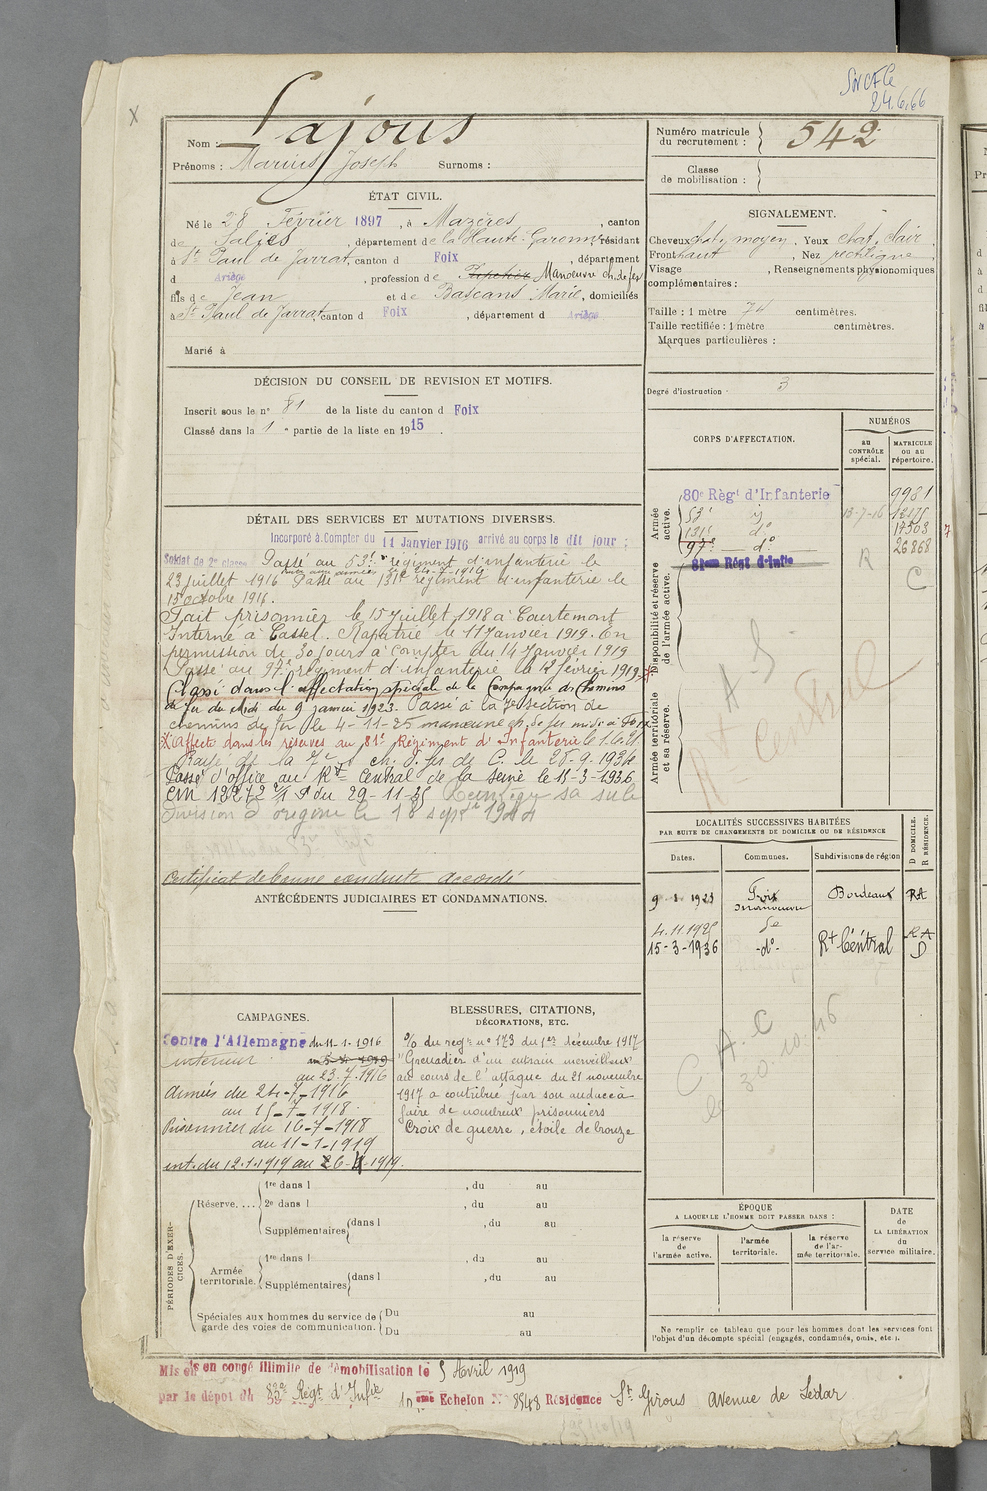 X
24.6.66
Nom : Lajous
Prénoms : Marius Joseph Surnoms :
Numéro matricule du recrutement : 542
Classe de mobilisation :
ÉTAT CIVIL.
Né le 28 Février 1897, à Mazères, canton
de Salies, département de la Haute-Garonne, résidant
à St Paul de Jarrat, canton d Foix, département
d Ariège, profession de Manœuvre ch. de fer
fils de Jean et de Bascans Marie, domiciliés
à St Paul de Jarrat, canton d Foix, département d Ariège
Marié à
SIGNALEMENT.
Cheveux chat. moyen, Yeux chat. clair,
Front haut, Nez rectiligne,
Visage , Renseignements physionomiques
complémentaires :
Taille : 1 mètre 74 centimètres.
Taille rectifiée : 1 mètre centimètres.
Marques particulières :
Degré d'instruction : 3
DÉCISION DU CONSEIL DE REVISION ET MOTIFS.
Inscrit sous le n° 81 de la liste du canton d Foix
Classé dans la 1re partie de la liste en 1915.
DÉTAIL DES SERVICES ET MUTATIONS DIVERSES.
Incorporé à Compter du 11 Janvier 1916 arrivé au corps le dit jour ;
Soldat de 2e classe Passé au 53e régiment d'infanterie le
23 juillet 1916. Passé au 131e régiment d'infanterie le
15 octobre 1916.
Fait prisonnier le 15 juillet 1918 à Courtemont
Interné à Cassel. Rapatrié le 11 Janvier 1919. En
permission de 30 jours à compter du 14 Janvier 1919
Passé au 97e régiment d'infanterie le 12 février 1919
Classé dans l'affectation spéciale de la Compagnie des Chemins
de fer du Midi du 9 janvier 1923. Passé à la 7e section de
chemins de fer le 4-11-25 manœuvre ch. de fer midi à Foix
Affecté dans les réserves au 81e Régiment d'Infanterie
Rayé de la 7e S. ch. d. fer de C. le 28-9-1934
Passé d'office au Rt Central de la Seine le 15-3-1936
CM 13272 du 29-11-35 sa sub
division d'origine le 18 sept 1944
Certificat de bonne conduite accordé
CORPS D'AFFECTATION.
NUMÉROS
au CONTRÔLE spécial.
MATRICULE ou au répertoire.
Armée active.
80e Régt d'Infanterie 9981
53e 13-7-16 12175
131e do 17503
97e do 26868
81eme Régt d'Infie
R
C
Disponibilité et réserve de l'armée active.
Armée territoriale et sa réserve.
A S
Rt Central
LOCALITÉS SUCCESSIVES HABITÉES
PAR SUITE DE CHANGEMENTS DE DOMICILE OU DE RÉSIDENCE
Dates. Communes. Subdivisions de région D DOMICILE. R RÉSIDENCE.
9 1 1923 Foix manœuvre Bordeaux RA
4.11.1925 do RA
15-3-1936 -do- Rt Central D
C. A. C
le 30.10.46
ANTÉCÉDENTS JUDICIAIRES ET CONDAMNATIONS.
CAMPAGNES.
Contre l'Allemagne du 11.1.1916
intérieur
au 23.7.1916
Armées du 24-7-1916
au 15-7-1918
Prisonnier du 16-7-1918
au 11-1-1919
int. du 12.1.1919 au
BLESSURES, CITATIONS,
DÉCORATIONS, ETC.
% du régt n° 173 du 1er décembre 1917
"Grenadier d'un entrain merveilleux
au cours de l'attaque du 21 novembre
1917 a contribué par son audace à
faire de nombreux prisonniers
Croix de guerre, étoile de bronze
PÉRIODES D'EXERCICES.
Réserve. . . . 1re dans l , du au
2e dans l , du au
Supplémentaires dans l , du au
Armée territoriale. 1re dans l , du au
Supplémentaires dans l , du au
Spéciales aux hommes du service de garde des voies de communication. Du au
Du au
ÉPOQUE
A LAQUELLE L'HOMME DOIT PASSER DANS :
la réserve de l'armée active.
l'armée territoriale.
la réserve de l'armée territoriale.
DATE de LA LIBÉRATION du service militaire.
Ne remplir ce tableau que pour les hommes dont les services font
l'objet d'un décompte spécial (engagés, condamnés, omis, etc.).
Mis en congé illimité de démobilisation le 5 Avril 1919
par le dépôt du 83e Régt d'Infie 10eme Echelon N° 8548 Résidence St Girons Avenue de Lédar